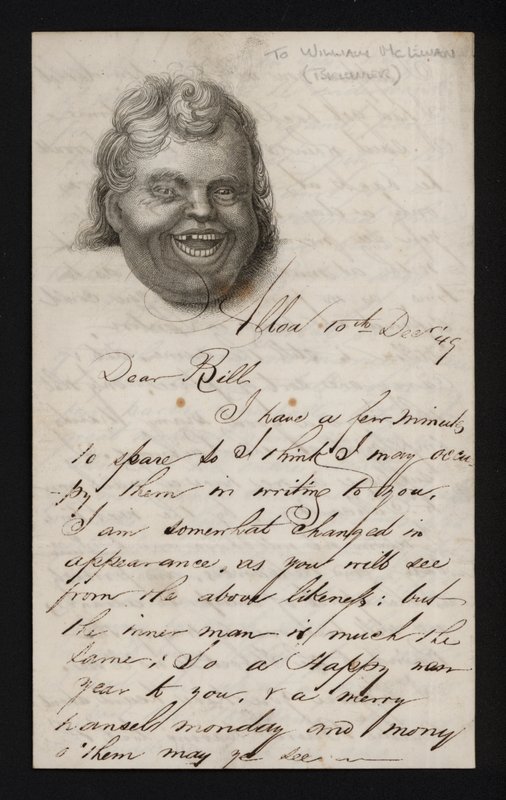 To William McLellan
Alloa 10th Decr 49
Dear Bill
I have a few minuts
to spare so I think I may occu-
-py them in writing to you.
I am somewhat changed in
appearance, as you will see
from the above likeness: but
the inner man is much the
same; So a Happy new
year to you, & a merry
hansel monday and mony
o' them may ye see